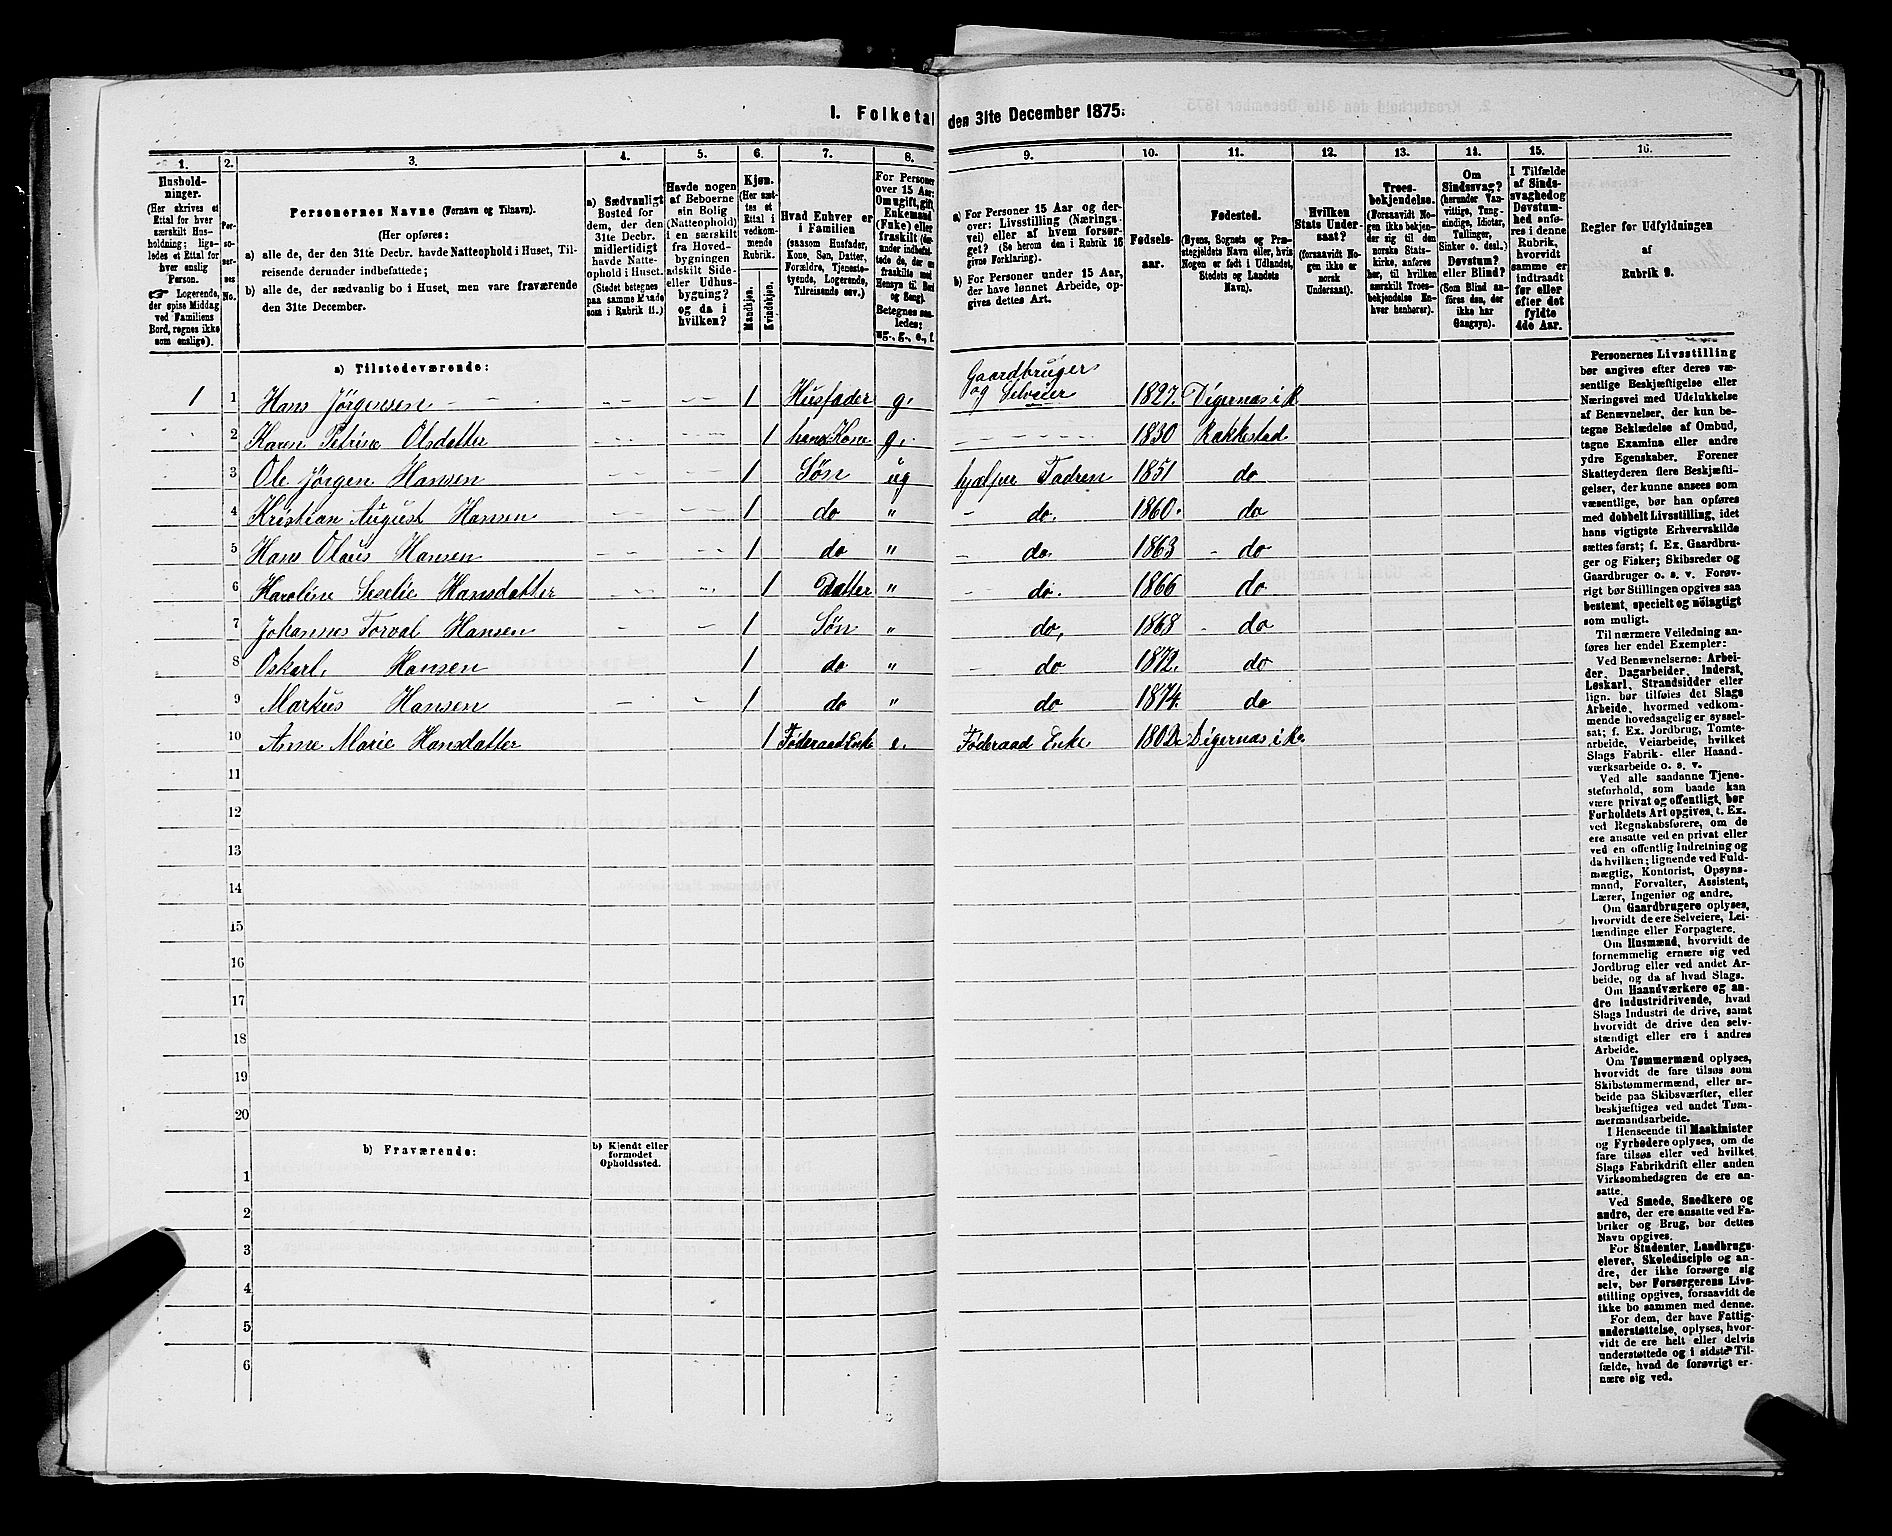 I. Folketal den 31te December 1875.
1. 2. 3. 4. 5. 6. 7. 8. 9. 10. 11. 12. 13. 14. 15. 16.
Husholdninger.
(Her skrives et Ettal for hver særskilt Husholdning; ligeledes et Ettal for hver enslig Person.
☞ Logerende, der spise Middag ved Familiens Bord, regnes ikke som enslige).
Personernes No.
Personernes Navne (Fornavn og Tilnavn).
(Her opføres:
a) alle de, der den 31te Decbr. havde Natteophold i Huset, Tilreisende derunder indbefattede;
b) alle de, der sædvanlig bo i Huset, men vare fraværende den 31te December.
a) Sædvanligt Bosted for dem, der den 31te Decbr. midlertidigt havde Natteophold i Huset. (Stedet betegnes paa samme Maade som i Rubrik 11.)
Havde nogen af Beboerne sin Bolig (Natteophold) i en særskilt fra Hovedbygningen adskilt Side- eller Udhusbygning? og da i hvilken?
Kjøn. (Her sættes et Ettal i vedkommende Rubrik.
Mandkjøn. Kvindekjøn.
Hvad Enhver er i Familien (saasom Husfader, Kone, Søn, Datter, Forældre, Tjenestetyende, Logerende, Tilreisende osv.)
For Personer over 15 Aar: Om ugift, gift, Enkemand (Enke) eller fraskilt
a) For Personer 15 Aar og derover: Livsstilling (Næringsvei) eller af hvem forsørget? (Se herom den i Rubrik 16 givne Forklaring).
b) For Personer under 15 Aar, der have lønnet Arbeide, opgives dettes Art.
Fødselsaar.
Fødested. (Byens, Sognets og Præstegjeldets Navn eller, hvis Nogen er født i Udlandet, Stedets og Landets Navn).
Hvilken Stats Undersaat? (forsaavidt Nogen ikke er norsk Undersaat).
Troesbekjendelse. (Forsaavidt Nogen ikke bekjender sig til den norske Statskirke, anføres her, til hvilken særskilt Troesbekjendelse Enhver henhører).
Om Sindssvag? (herunder Vanvittige, Tungsindige, Idioter, Tullinger, Sinker o. desl.) Døvstum? eller Blind? (Som Blind anføres den, der ikke har Gangsyn).
I Tilfælde af Sindssvaghed og Døvstumhed anføres i denne Rubrik, hvorvidt samme er indtraadt før eller efter det fyldte 4de Aar.
Regler for Udfyldningen af Rubrik 9.
a) Tilstedeværende:
1 1 Hans Jörgensen 1 Husfader g. Gaardbruger og Selveier 1827. Digernæs i R
2 Karen Petrine Olsdatter 1 hans Kone g. 1830 Rakkestad
3 Ole Jörgen Hansen 1 Søn ug hjælper Fadren 1851 do
4 Kristian August Hansen 1 do " do. 1860. do
5 Hans Olaus Hansen 1 do " do. 1863 do
6 Karoline Seselie Hansdatter 1 Datter " do. 1866 do
7 Johannes Torval Hansen 1 Søn " do. 1868 do
8 Oskarl. Hansen 1 do " do 1872. do
9 Markus Hansen 1 do " do 1874. do
10 Anne Marie Hansdatter 1 Föderaad Enke e. Föderaad Enke 1802 Digernæs i R
11
12
13
14
15
16
17
18
19
20
b) Fraværende:
b) Kjendt eller formodet Opholdssted.
1
2
3
4
5
6
Personernes Livsstilling
bør angives efter deres væ-
sentlige Beskjæftigelse eller
Næringsvei med Udelukkelse
af Benævnelser, der kun be-
tegne Beklædelse af Ombud,
tagne Examina eller andre
ydre Egenskaber. Forener
Skatteyderen flere Beskjæfti-
gelser, der kunne ansees som
væsentlige, bør han opføres
med dobbelt Livsstilling, idet
hans vigtigste Erhvervskilde
sættes først; f. Ex. Gaardbru-
ger og Fisker; Skibsreder og
Gaardbruger o. s. v. Forøv-
rigt bør Stillingen opgives saa
bestemt, specielt og nøiagtigt
som muligt.
Til nærmere Veiledning an-
føres her endel Exempler:
Ved Benævnelserne: Arbei-
der, Dagarbeider, Inderst,
Løskarl, Strandsidder eller
lign. bør tilføies det Slags
Arbeide, hvormed vedkom-
mende hovedsagelig er syssel-
sat; f. Ex. Jordbrug, Tomte-
arbeide, Veiarbeide, hvilket
Slags Fabrik- eller Haand-
værksarbeide o. s. v.
Ved alle saadanne Tjene-
steforhold, som baade kan
være privat og offentligt, bør
Forholdets Art opgives, t. Ex.
ved Regnskabsførere, om de
ere ansatte ved en privat eller
ved en offentlig Indretning og
da hvilken; lignende ved Fuld-
mægtig, Kontorist, Opsyns-
mand, Forvalter, Assistent,
Lærer, Ingeniør og andre.
Om Gaardbrugere oplyses,
hvorvidt de ere Selveiere, Lei-
lændinge eller Forpagtere.
Om Husmænd, hvorvidt de
fornemmelig ernære sig ved
Jordbrug eller ved andet Ar-
beide, og da af hvad Slags.
Om Haandværkere og an-
dre Industridrivende, hvad
Slags Industri de drive, samt
hvorvidt de drive den selv-
stændigt eller ere i andres
Arbeide.
Om Tømmermænd oplyses,
hvorvidt de fare tilsøs som
Skibstømmermænd, eller ar-
beide paa Skibsværfter, eller
beskjæftiges ved andet Tøm-
mermandsarbeide.
I Henseende til Maskinister
og Fyrbødere oplyses, om de
fare tilsøs eller ved hvilket
Slags Fabrikdrift eller anden
Virksomhedsgren de ere an-
satte.
Ved Smede, Snedkere og
andre, der ere ansatte ved Fa-
briker og Brug, bør dettes
Navn opgives.
For Studenter, Landbrugs-
elever, Skoledisciple og an-
dre, der ikke forsørge sig
selv, bør Forsørgerens Livs-
stilling opgives, forsaavidt de
ikke bo sammen med denne.
For dem, der have Fattig-
understøttelse, oplyses, hvor-
vidt de ere helt eller delvis
understøttede og i sidste Til-
fælde, hvad de forøvrigt er-
nære sig ved.